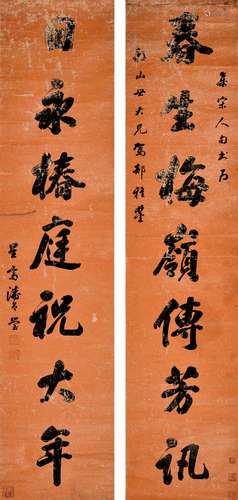 集宋人句書為
春生梅嶺傳芳訊
山世大兄駕部雅鑒
日永椿庭祝大年
星齋潘曾瑩